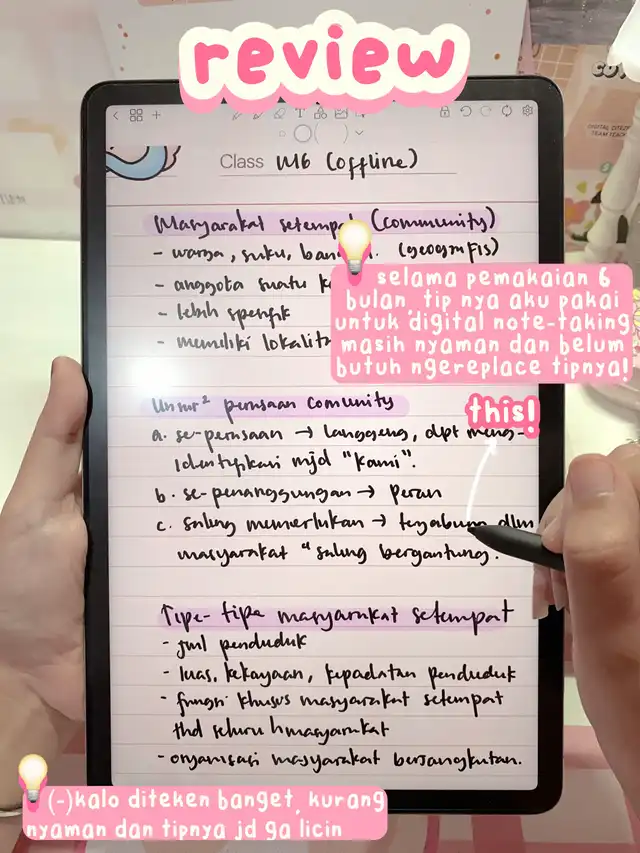 review
Class M6 (offline)
Masyarakat setempat (community)
- warga, suku, (geografis)
- anggota suatu
- lebih spesifik
- memiliki
💡 selama pemakaian 6
bulan, tip nya aku pakai
untuk digital note-taking
masih nyaman dan belum
butuh ngereplace tipnya!
Unsur² perasaan comunity
this!
a. se-perasaan → langgeng, dpt meng-
identifikasi mjd "kami".
b. se-penanggungan → peran
c. saling memerlukan → tergabung dlm
masyarakat "saling bergantung.
Tipe-tipe masyarakat setempat
- jml penduduk
- luas, kekayaan, kepadatan penduduk
- fungsi khusus masyarakat setempat
thd seluruh masyarakat
- organisasi masyarakat bersangkutan.
💡 (-)kalo diteken banget, kurang
nyaman dan tipnya jd ga licin